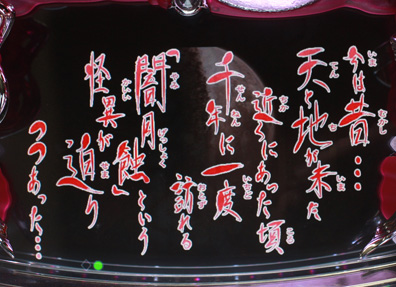 今は昔…
天と地が未だ
近くにあった頃
千年に一度
訪れる
「闇月蝕」という
怪異が迫り
つつあった…